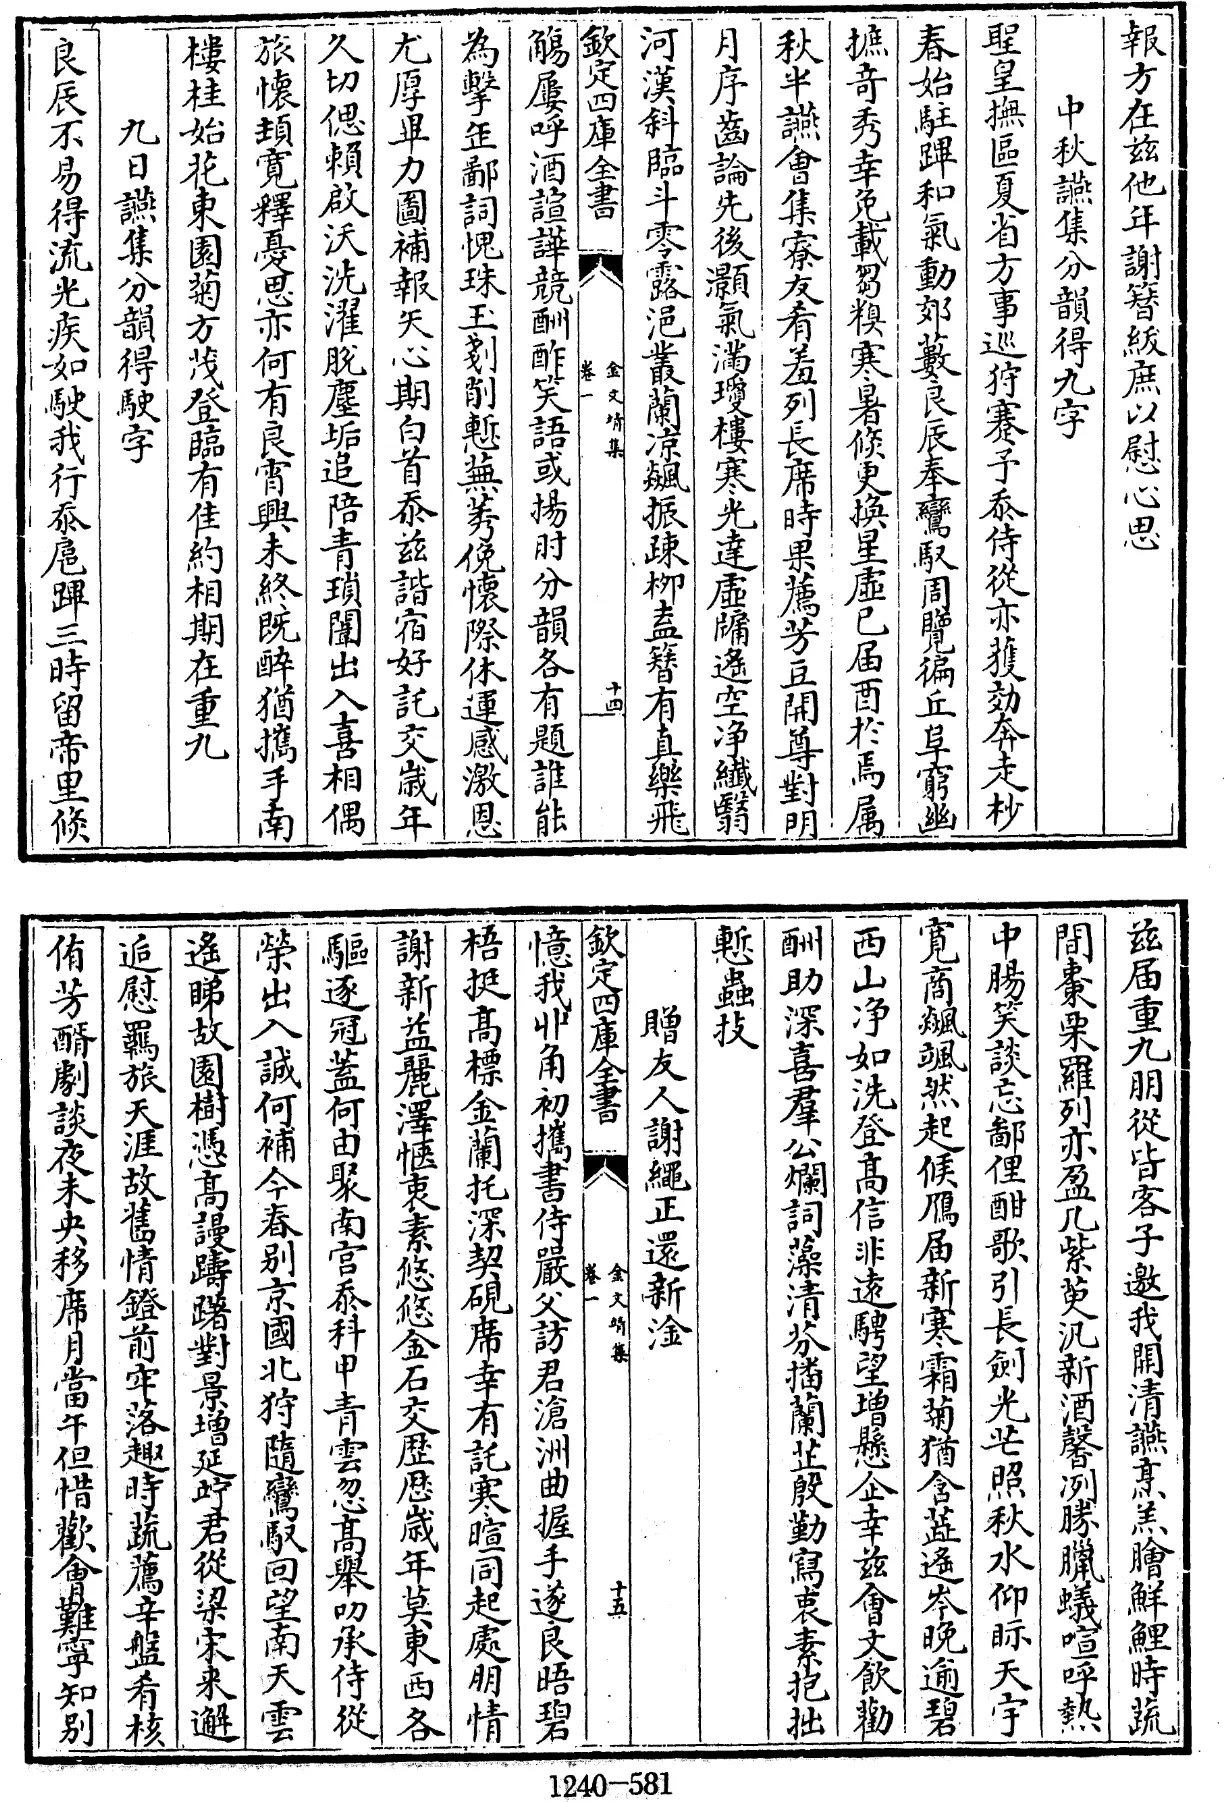 報方在兹他年謝簪紱庶以慰心思
中秋讌集分韻得九字
聖皇撫區夏省方事巡狩蹇予忝侍從亦獲効奔走杪
春始駐蹕和氣動郊藪良辰奉鸞馭周覽徧丘阜窮幽
摭奇秀幸免載芻糗寒暑倐更換星虛已届酉於焉属
秋半讌會集寮友肴羞列長席時果薦芳豆開尊對明
月序齒論先後灝氣滿瓊樓寒光達虛牖遙空净纎翳
河漢斜臨斗零露浥叢蘭凉飊振踈栁盍簪有真樂飛
欽定四庫全書
金文靖集
卷一
十四
觴屢呼酒諠譁競酬酢笑語或揚肘分韻各有題誰能
為擊缶鄙詞愧珠玉剗削慙蕪莠俛懷際休運感激恩
尤厚畢力圖補報矢心期白首忝兹諧宿好託交嵗年
久切偲賴啟沃洗濯脫塵垢追陪青瑣闥出入喜相偶
旅懷頼寛釋憂思亦何有良宵興未終既醉猶攜手南
樓桂始花東園菊方茂登臨有佳約相期在重九
九日讌集分韻得駛字
良辰不易得流光疾如駛我行忝扈蹕三時留帝里倐
兹届重九朋從皆客子邀我開清讌烹羔膾鮮鯉時蔬
間棗栗羅列亦盈几紫萸汎新酒馨洌勝臘蟻喧呼熱
中腸笑談忘鄙俚酣歌引長劍光芒照秋水仰眎天宇
寛商飊颯然起候鴈届新寒霜菊猶含蕋遙岑晚逾碧
西山净如洗登高信非遠騁望增懸企幸兹會文飲勸
酬助深喜羣公爛詞藻清芬播蘭芷殷勤寫衷素抱拙
慙蟲技
贈友人謝繩正還新淦
欽定四庫全書
金文靖集
卷一
十五
憶我丱角初攜書侍嚴父訪君滄洲曲握手遂良晤碧
梧挺高標金蘭托深契硯席幸有託寒暄同起處朋情
謝新益麗澤愜衷素悠悠金石交歴歴嵗年莫東西各
驅逐冠蓋何由聚南宮忝科甲青雲忽高舉叨承侍從
榮出入誠何補今春别京國北狩隨鸞馭回望南天雲
遙睇故園樹憑高謾躊躇對景增延竚君從梁宋来邂
逅慰羈旅天涯故舊情鐙前牢落趣時蔬薦辛盤肴核
侑芳醑劇談夜未央移席月當午但惜歡會難寧知别
1240—581